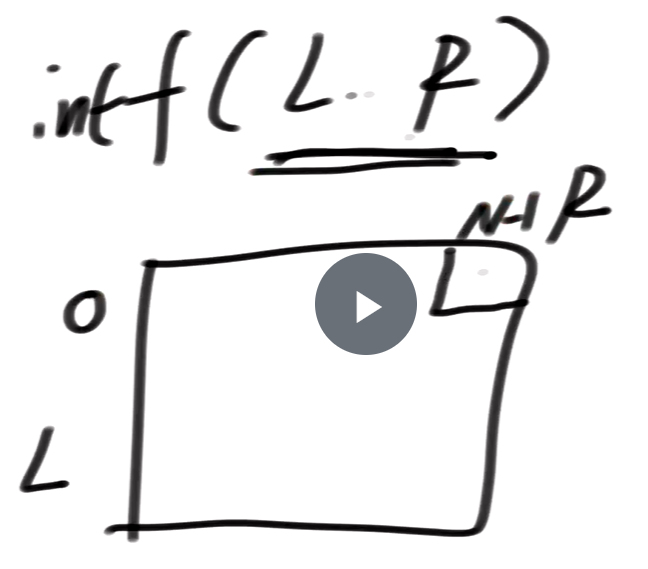 int f(L.. R)
N-1 R
0
L